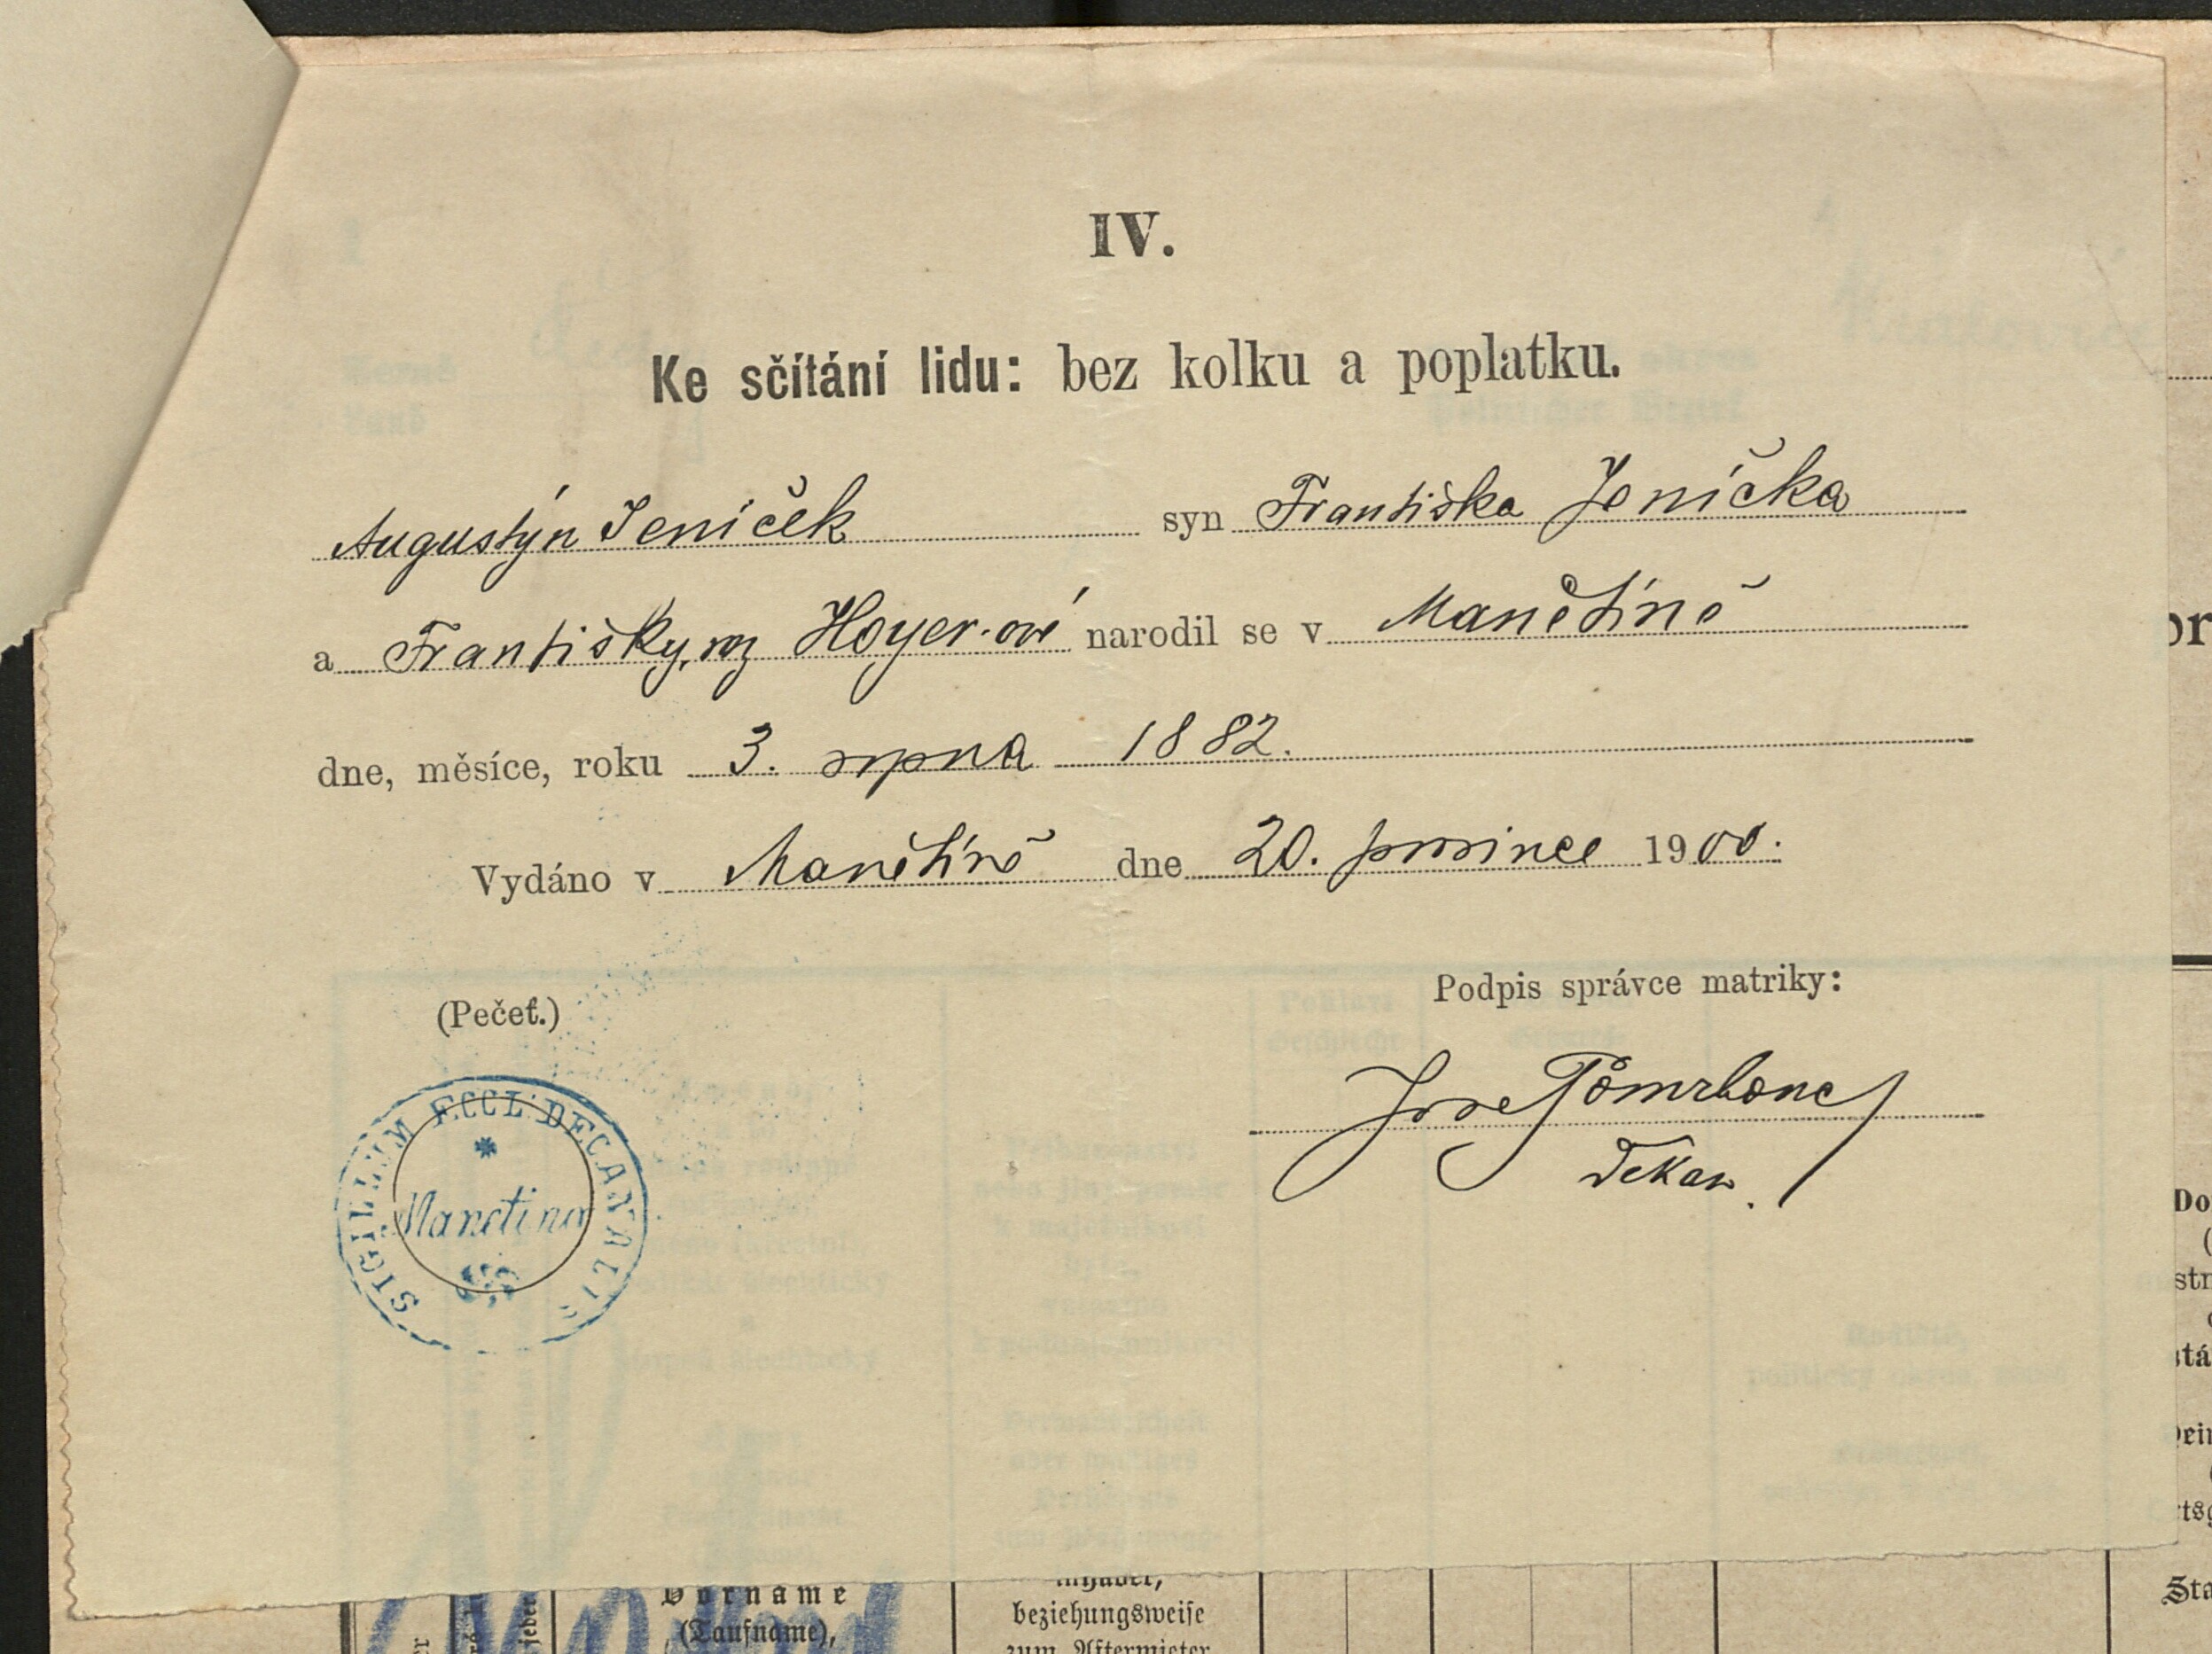 IV.
Ke sčítání lidu: bez kolku a poplatku.
Augustýn Jeníček syn Františka Jeníčka
a Františky, roz Hoyer-ové narodil se v Manětíně
dne, měsíce, roku 3. srpna 1882.
Vydáno v Manětíně dne 20. prosince 1900.
(Pečeť.)
Podpis správce matriky:
Josef
Děkan.
SIGILLUM ECCL: DECANALIS
Manetinae
Vorname
(Taufname),
beziehungsweise
zum Aftermieter